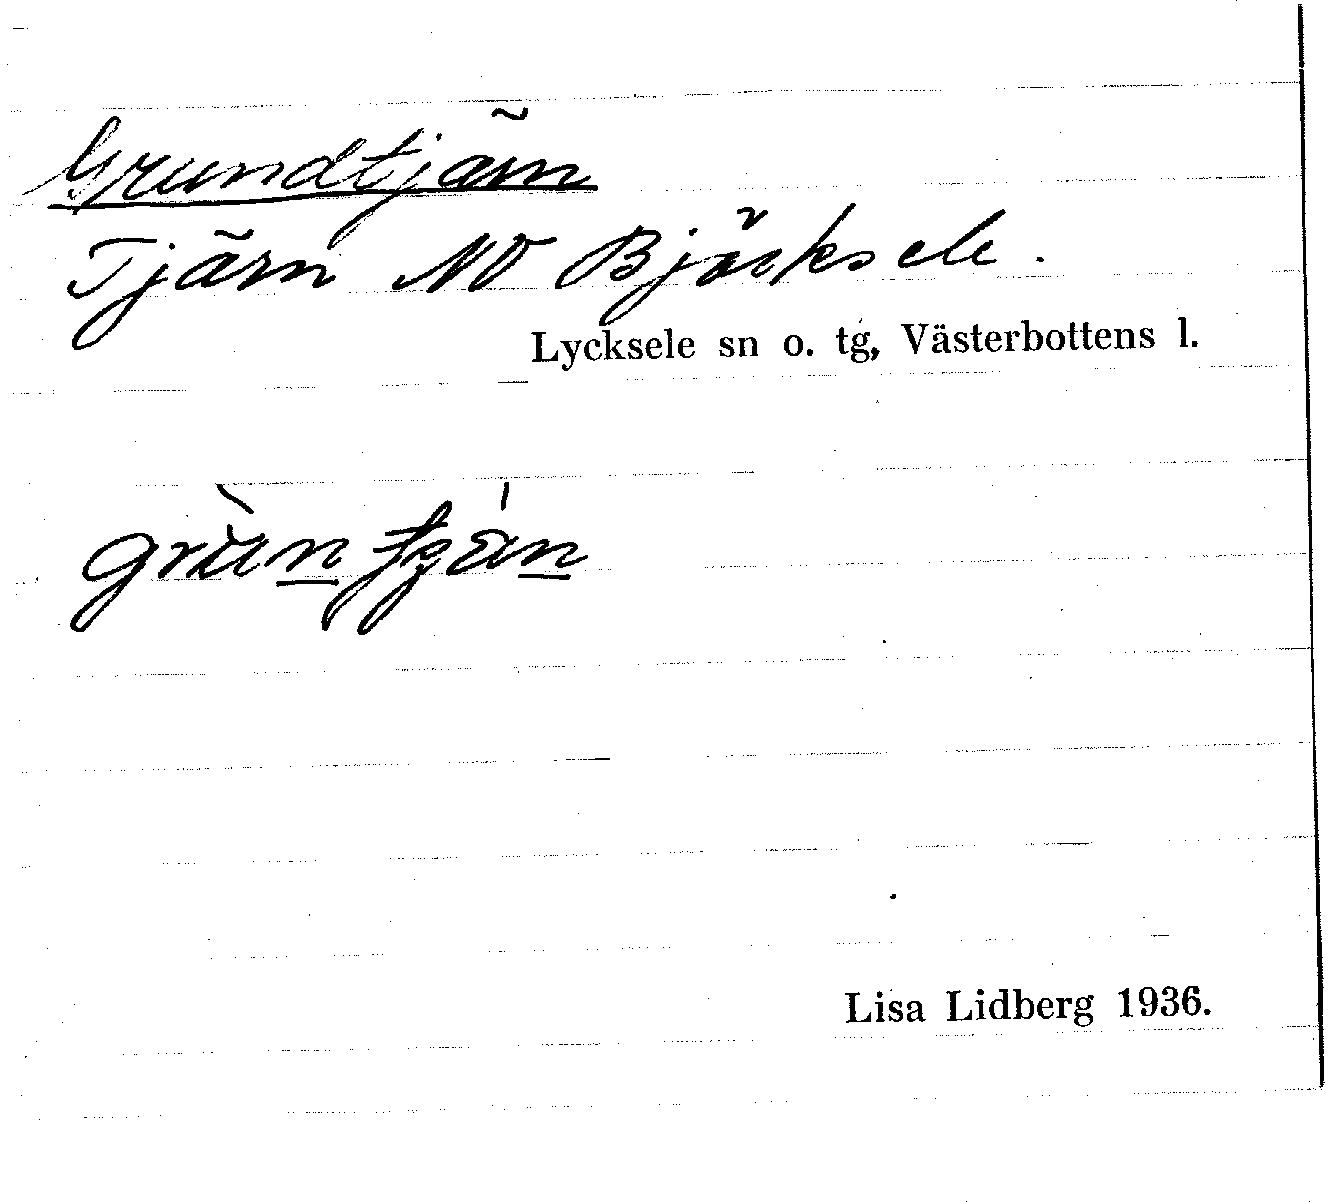 Grundtjärn
Tjärn NO Björksele.
Lycksele sn o. tg, Västerbottens l.
Lisa Lidberg 1936.